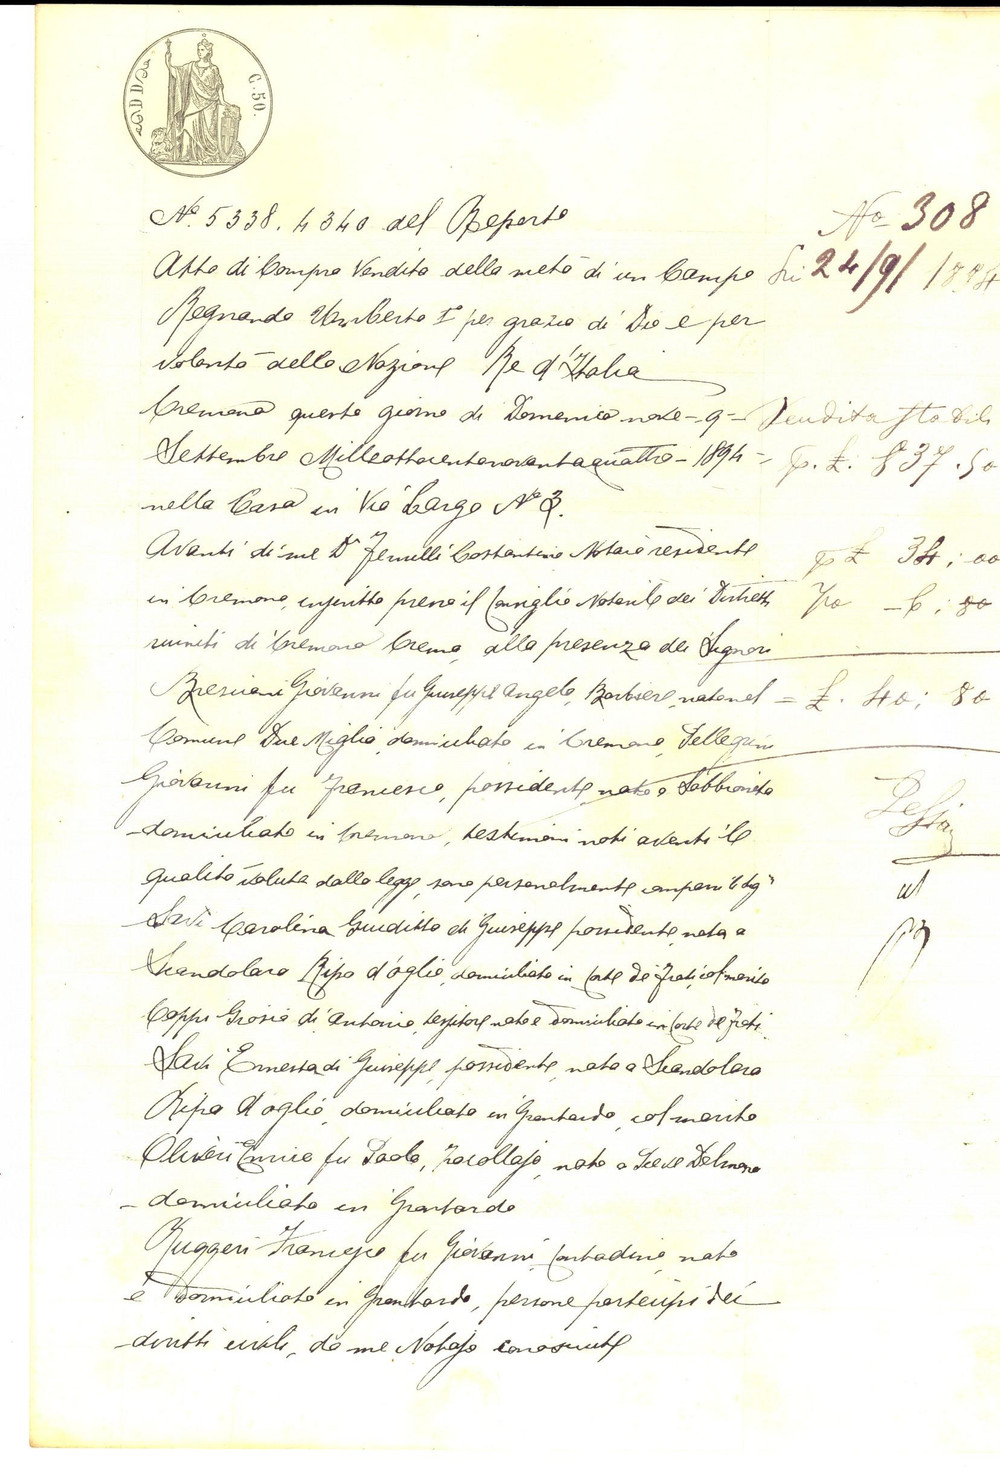 C. 50.
N.o 5338. 4340 del Reperto
No 308
Atto di Compra Vendita della metà di un Campo
li 24/9/1894
Regnando Umberto Io per grazia di Dio e per
volontà della Nazione Re d'Italia
Cremona questo giorno di Domenica nove - 9 -
Vendita stabili
Settembre Milleottocentonovantaquattro - 1894 -
p. £. 837.50
nella Casa in Via Largo No 3.
Avanti di me Dr Costantino Notaio residente
£ 34:00
in Cremona, inscritto presso il Consiglio Notarile dei Distretti
6:80
riuniti di Cremona Crema, alla presenza dei Signori
Bresciani Giovanni fu Giuseppe Angelo, Barbiere, nato nel
= £. 40:80
Comune Due Miglia, domiciliato in Cremona, Pellegrini
Giovanni fu Francesco, possidente, nato a Sabbioneta
domiciliato in Cremona, testimoni noti aventi le
qualità volute dalla legge, sono personalmente comparsi li
Carolina Giuditta di Giuseppe possidente, nata a
Scandolara Ripa d'Oglio, domiciliata in Corte de' Frati, col marito
Coppi di Antonio, tessitore nato e domiciliato in Corte de' Frati.
Ernesta di Giuseppe, possidente, nata a Scandolara
Ripa d'Oglio, domiciliata in Grontardo, col marito
Olivieri Enrico fu Paolo, nato a Pieve Delmona
domiciliato in Grontardo
Ruggeri Francesco fu Giovanni, Contadino, nato
e domiciliato in Grontardo, persone partecipi dei
diritti civili, da me Notajo conosciute